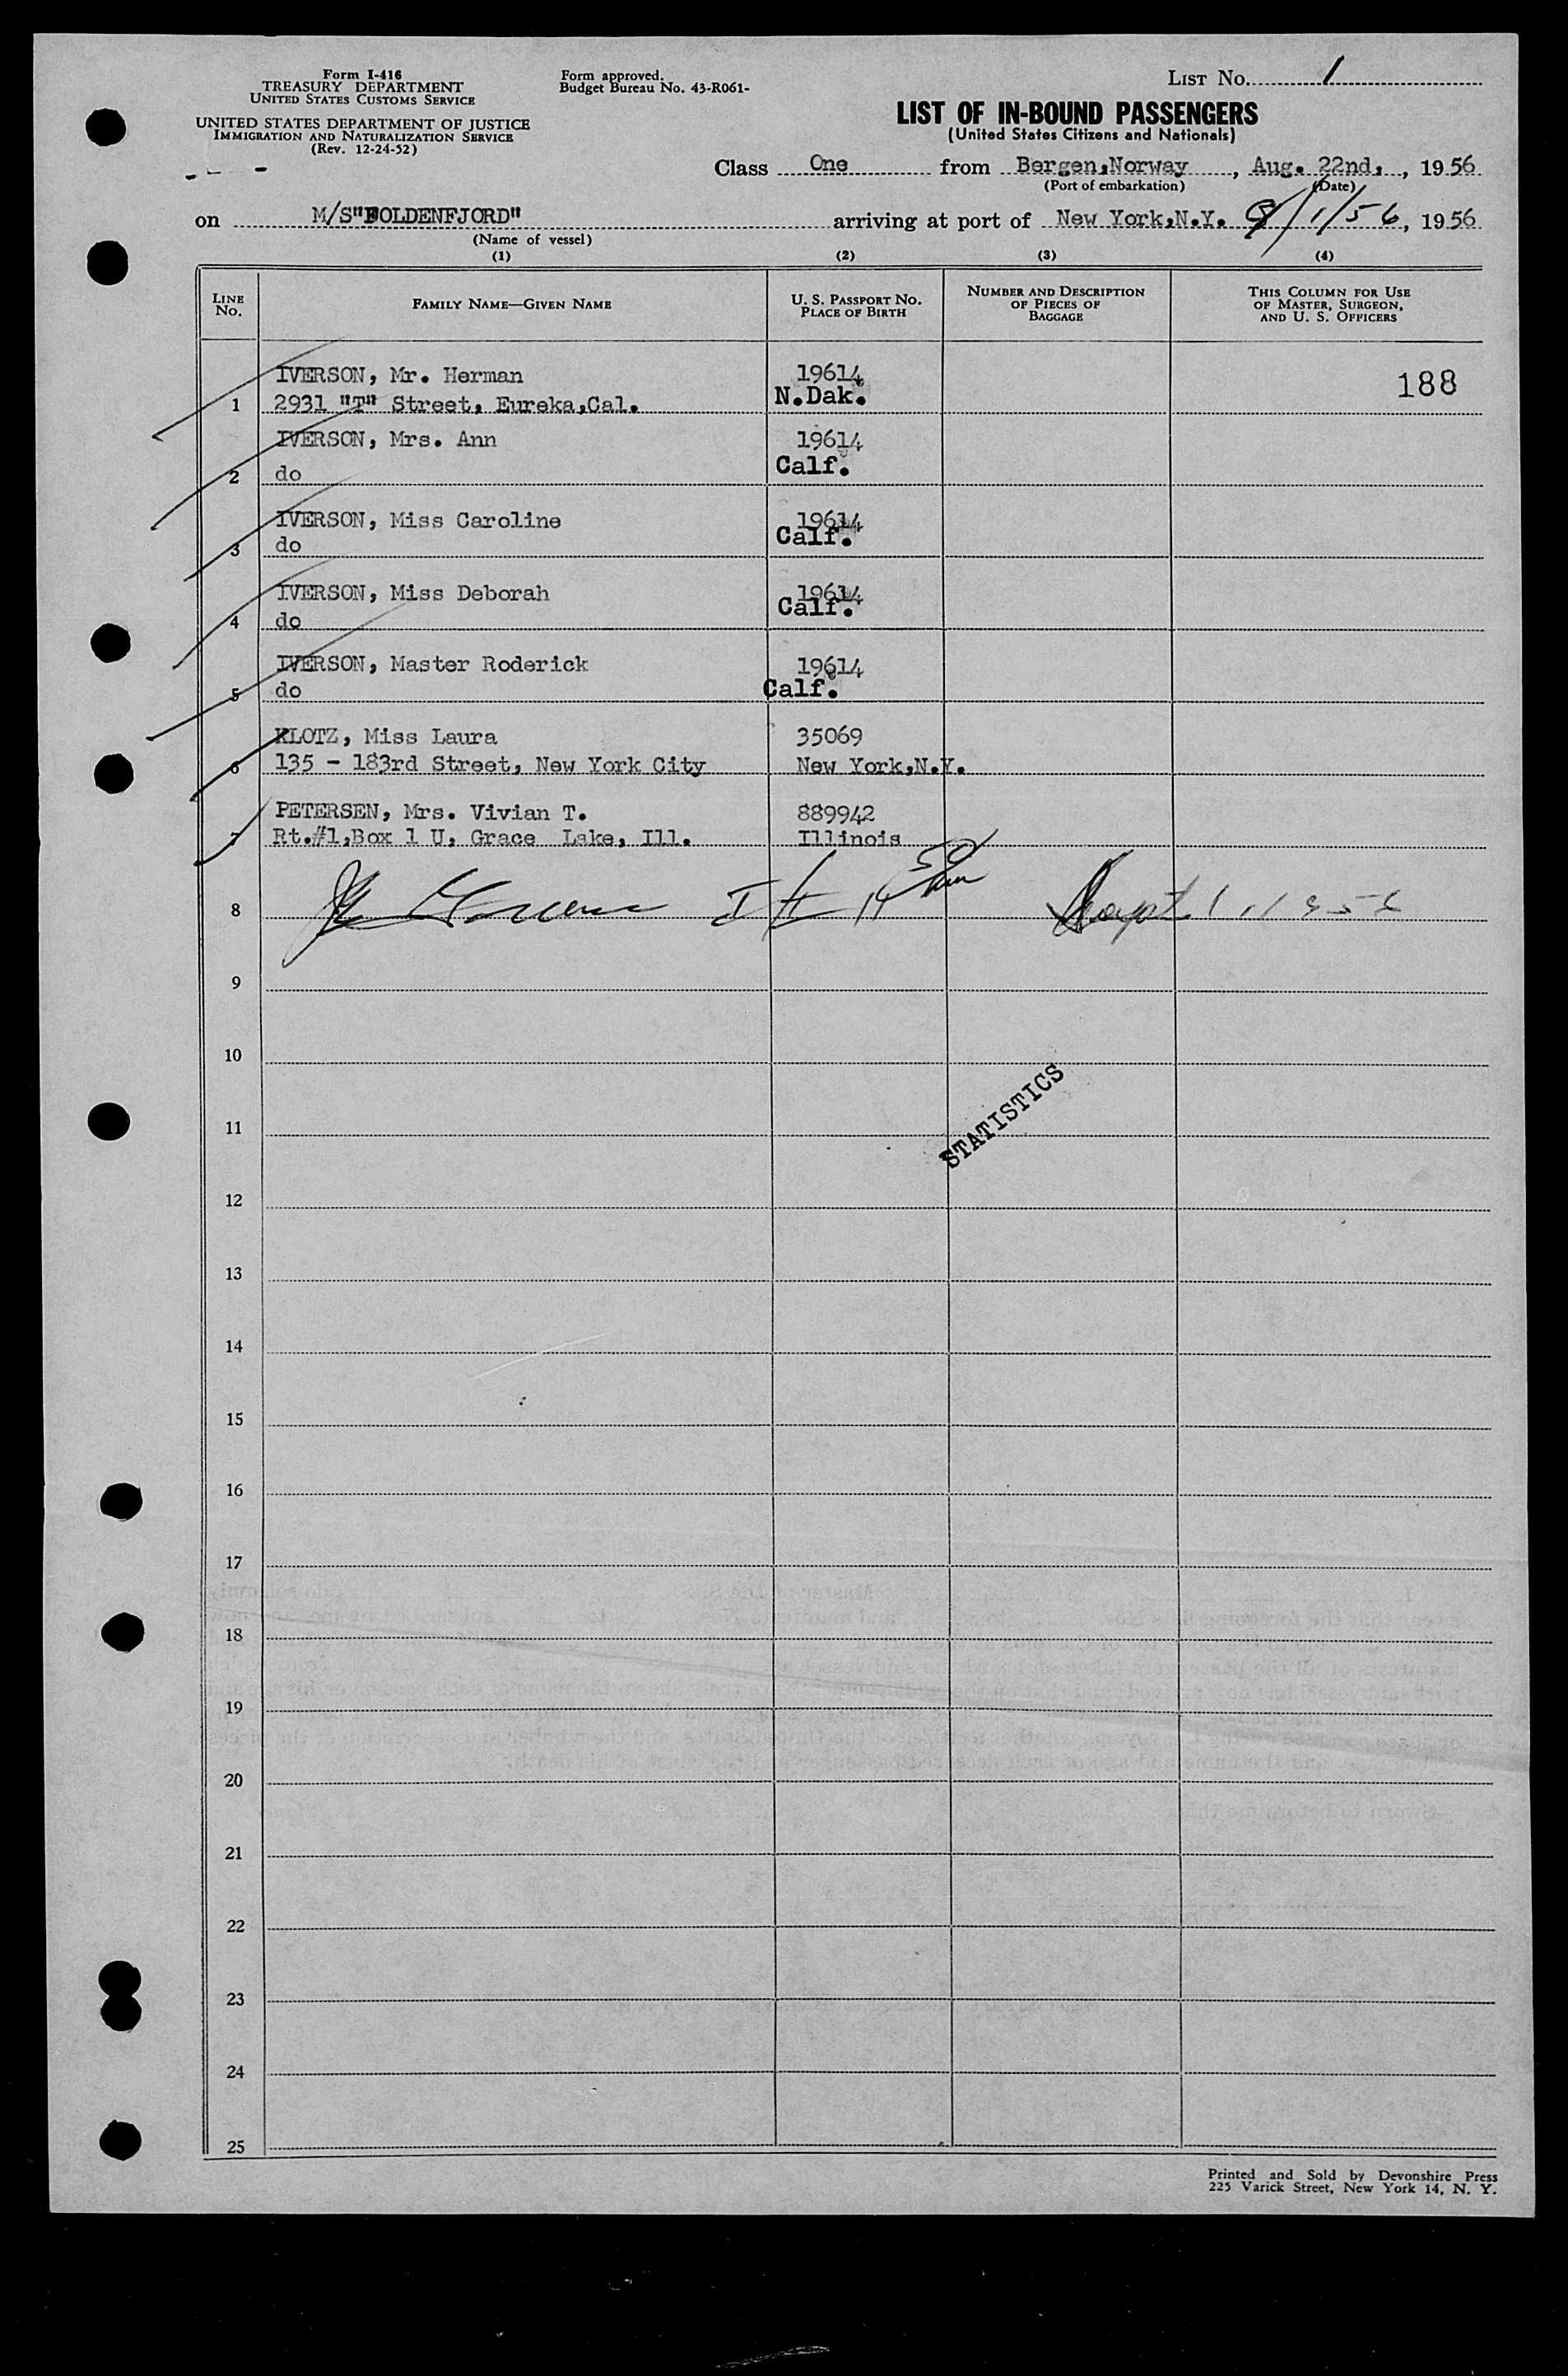 Form I-416
TREASURY DEPARTMENT
UNITED STATES CUSTOMS SERVICE
UNITED STATES DEPARTMENT OF JUSTICE
IMMIGRATION AND NATURALIZATION SERVICE
(Rev. 12-24-52)
Form approved.
Budget Bureau No. 43-R061-
LIST No. 1
LIST OF IN-BOUND PASSENGERS
(United States Citizens and Nationals)
Class One from Bergen,Norway, Aug. 22nd, , 1956
(Port of embarkation) (Date)
on M/S"FOLDENFJORD" arriving at port of New York,N.Y. 9/1/56, 1956
(Name of vessel)
(1) (2) (3) (4)
LINE No. FAMILY NAME—GIVEN NAME U. S. PASSPORT No. PLACE OF BIRTH NUMBER AND DESCRIPTION OF PIECES OF BAGGAGE THIS COLUMN FOR USE OF MASTER, SURGEON, AND U. S. OFFICERS
IVERSON, Mr. Herman 19614 188
1 2931 "T" Street, Eureka,Cal. N.Dak.
IVERSON, Mrs. Ann 19614
2 do Calf.
IVERSON, Miss Caroline 19614
3 do Calf.
IVERSON, Miss Deborah 19614
4 do Calf.
IVERSON, Master Roderick 19614
5 do Calf.
KLOTZ, Miss Laura 35069
6 135 - 183rd Street, New York City New York,N.Y.
PETERSEN, Mrs. Vivian T. 889942
7 Rt.#1,Box 1 U, Grace Lake, Ill. Illinois
8 Sept 1, 1956
9
10
STATISTICS
11
12
13
14
15
16
17
18
19
20
21
22
23
24
25
Printed and Sold by Devonshire Press
225 Varick Street, New York 14, N. Y.